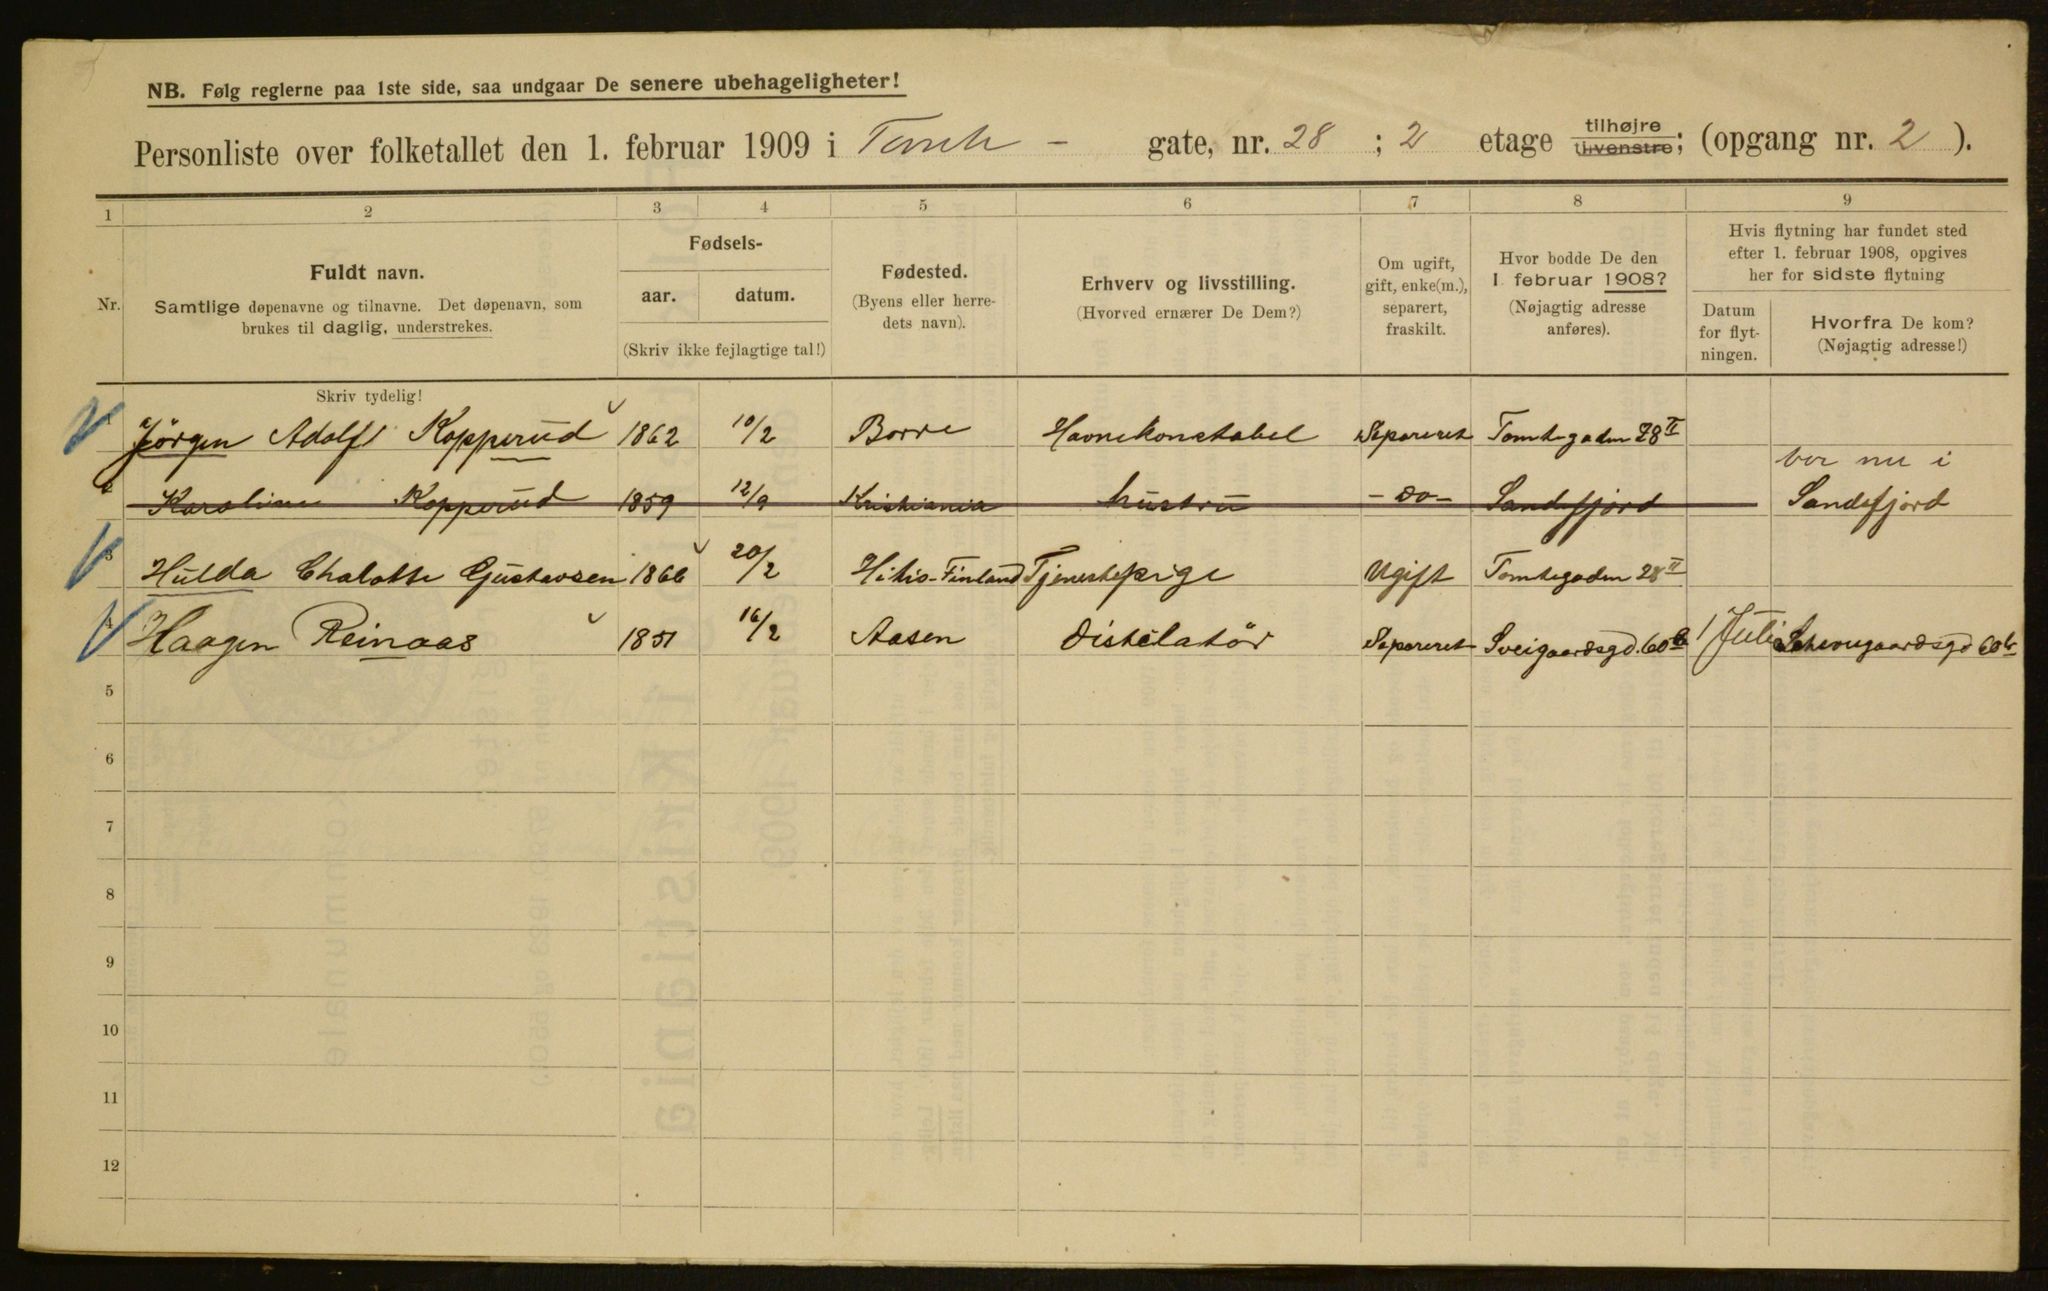 NB. Følg reglerne paa 1ste side, saa undgaar De senere ubehageligheter!
Personliste over folketallet den 1. februar 1909 i Tomte - gate, nr. 28 ; 2 etage tilhøjre tilvenstre; (opgang nr. 2 ).
1 2 3 4 5 6 7 8 9
Nr.
Fuldt navn.
Samtlige døpenavne og tilnavne. Det døpenavn, som
brukes til daglig, understrekes.
Fødsels-
aar. datum.
(Skriv ikke fejlagtige tal!)
Fødested.
(Byens eller herre-
dets navn).
Erhverv og livsstilling.
(Hvorved ernærer De Dem?)
Om ugift,
gift, enke(m.),
separert,
fraskilt.
Hvor bodde De den
1 februar 1908?
(Nøjagtig adresse
anføres).
Hvis flytning har fundet sted
efter 1. februar 1908, opgives
her for sidste flytning
Datum
for flyt-
ningen.
Hvorfra De kom?
(Nøjagtig adresse!)
Skriv tydelig!
1 Jörgen Adolf Kopperud 1862 10/2 Borre Havnekonstabel Separeret Tomtegaden 28 II
bor nu i
2 Karoline Kopperud 1859 12/9 Kristiania hustru - do - Sandefjord Sandefjord
3 Hulda Chalotte Gustavsen 1866 20/2 Hitis-Finland Tjenestepige Ugift Tomtegaden 28 II
4 Haagen Reinaas 1851 16/2 Aasen Distelatör Separeret Sveigaardsgd. 60 b 1/Juli Schweigaardsgd 60 b
5
6
7
8
9
10
11
12